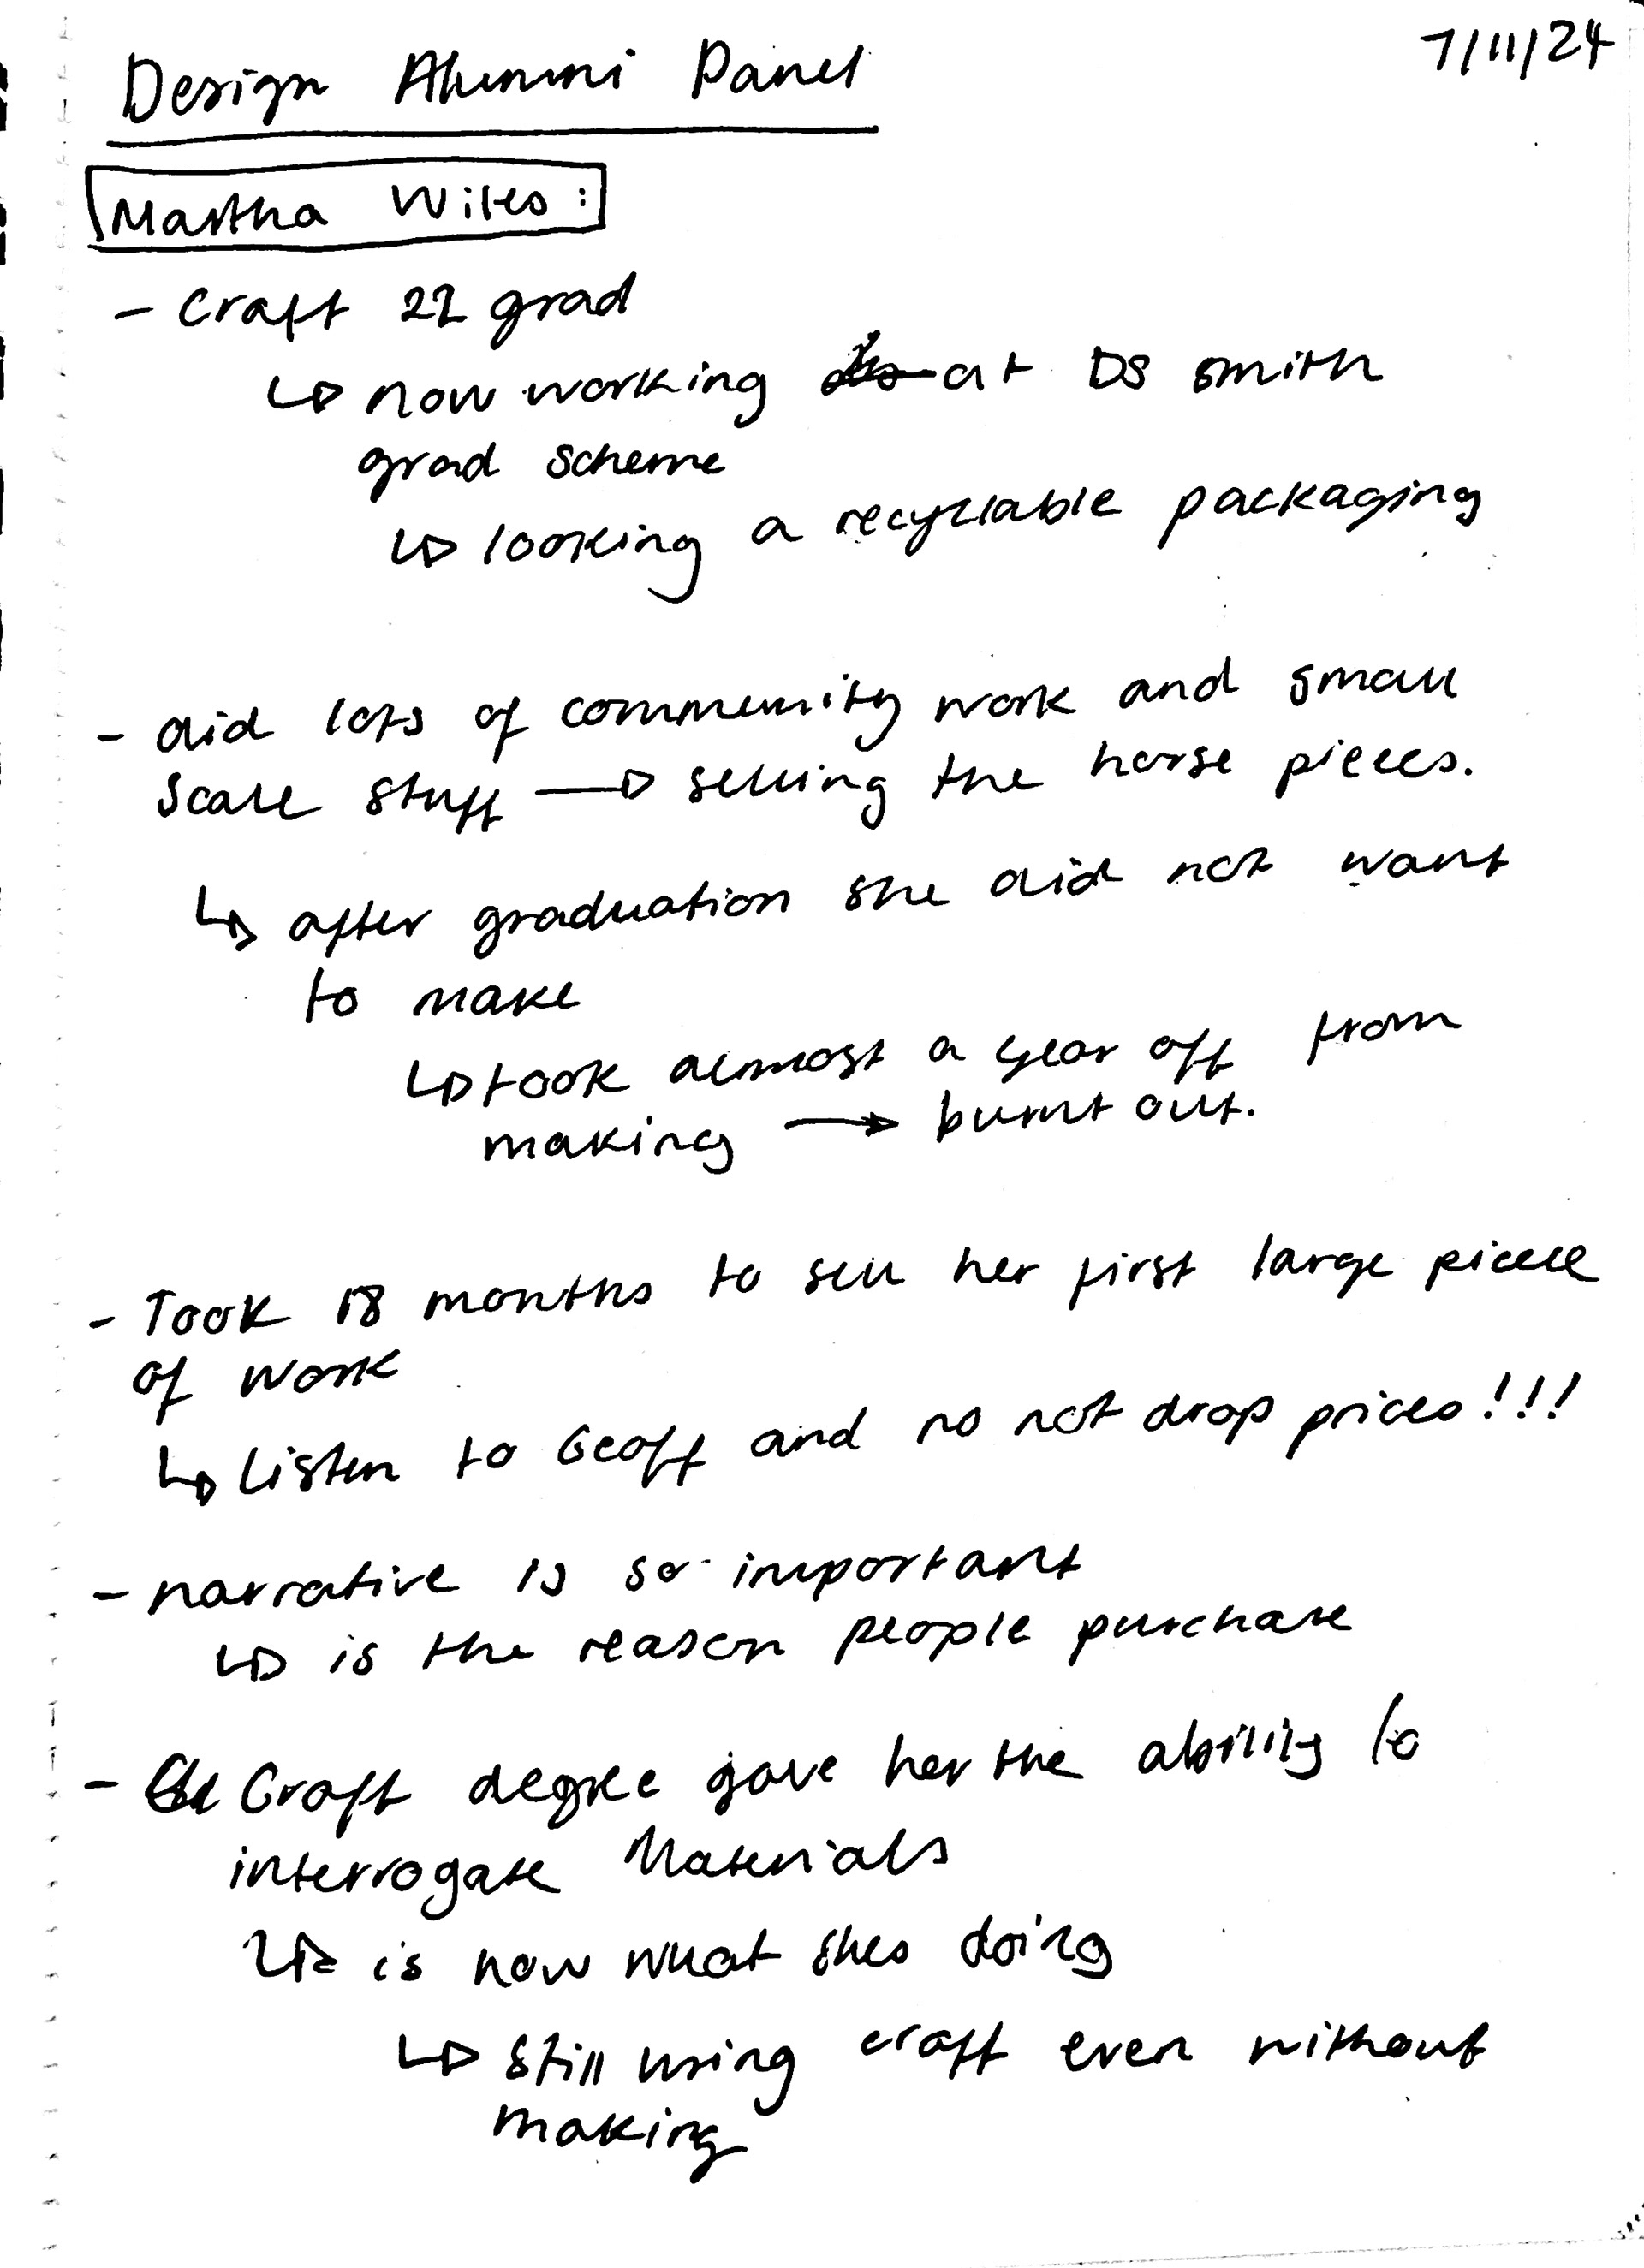 7/11/24
Design Alumni Panel
Martha Wiles:
- Craft 22 grad
↳ now working at DS smith
grad scheme
↳ looking a recyclable packaging
- did lots of community work and small
scale stuff → selling the horse pieces.
↳ after graduation she did not want
to make
↳ took almost a year off from
making → burnt out.
- Took 18 months to sell her first large piece
of work
↳ listen to Geoff and no not drop prices!!!
- narrative is so important
↳ is the reason people purchase
- Craft degree gave her the ability to
interrogate Materials
↳ is now what shes doing
↳ still using craft even without
making